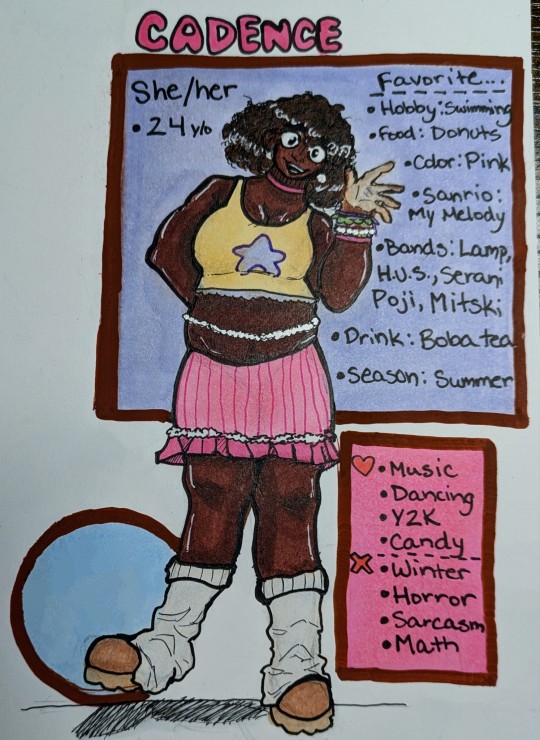 CADENCE
She/her
• 24 y/o
Favorite...
• Hobby: Swimming
• Food: Donuts
• Color: Pink
• Sanrio:
My Melody
• Bands: Lamp,
H.U.S., Serani
Poji, Mitski
• Drink: Boba tea
• Season: Summer
• Music
• Dancing
• Y2K
• Candy
• Winter
• Horror
• Sarcasm
• Math